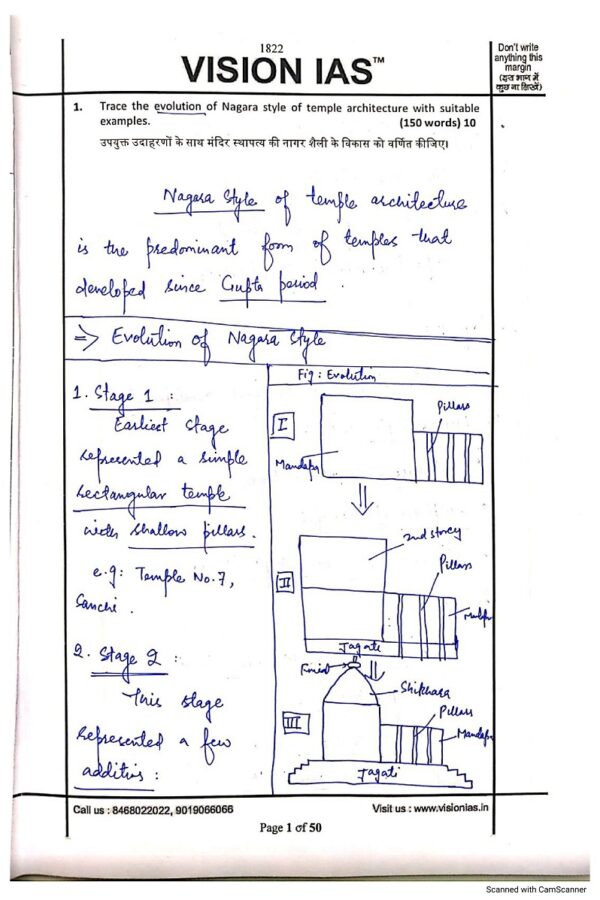 1822
VISION IAS™
Don't write
anything this
margin
(इस भाग में
कुछ ना लिखें)
1. Trace the evolution of Nagara style of temple architecture with suitable
examples. (150 words) 10
उपयुक्त उदाहरणों के साथ मंदिर स्थापत्य की नागर शैली के विकास को वर्णित कीजिए।
Nagara style of temple architecture
is the predominant form of temples that
developed since Gupta period.
=> Evolution of Nagara Style
1. Stage 1 :
Earliest stage
represented a simple
rectangular temple
with shallow pillars.
e.g: Temple No.7,
Sanchi.
2. Stage 2 :
This stage
represented a few
additins :
Fig : Evolution
I
Pillars
Mandapa
II
2nd storey
Pillars
Jagati
III
Finial
Shikhara
Pillars
Mandapa
Jagati
Call us : 8468022022, 9019066066 Visit us : www.visionias.in
Page 1 of 50
Scanned with CamScanner